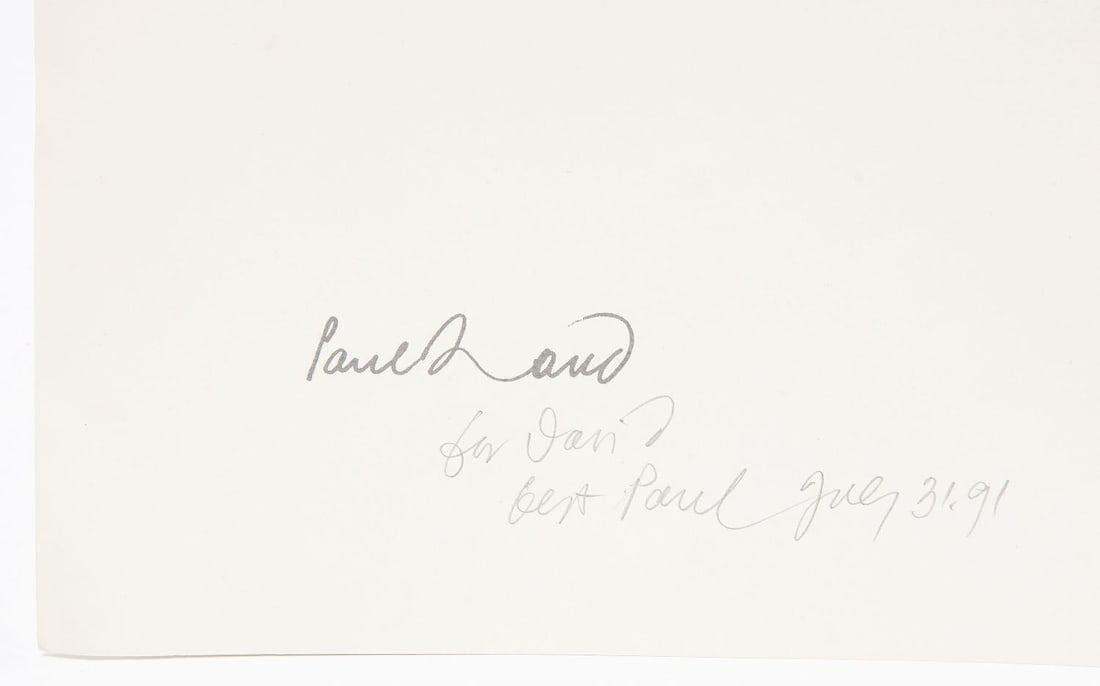 Paul Rand
for David
best Paul July 31.91